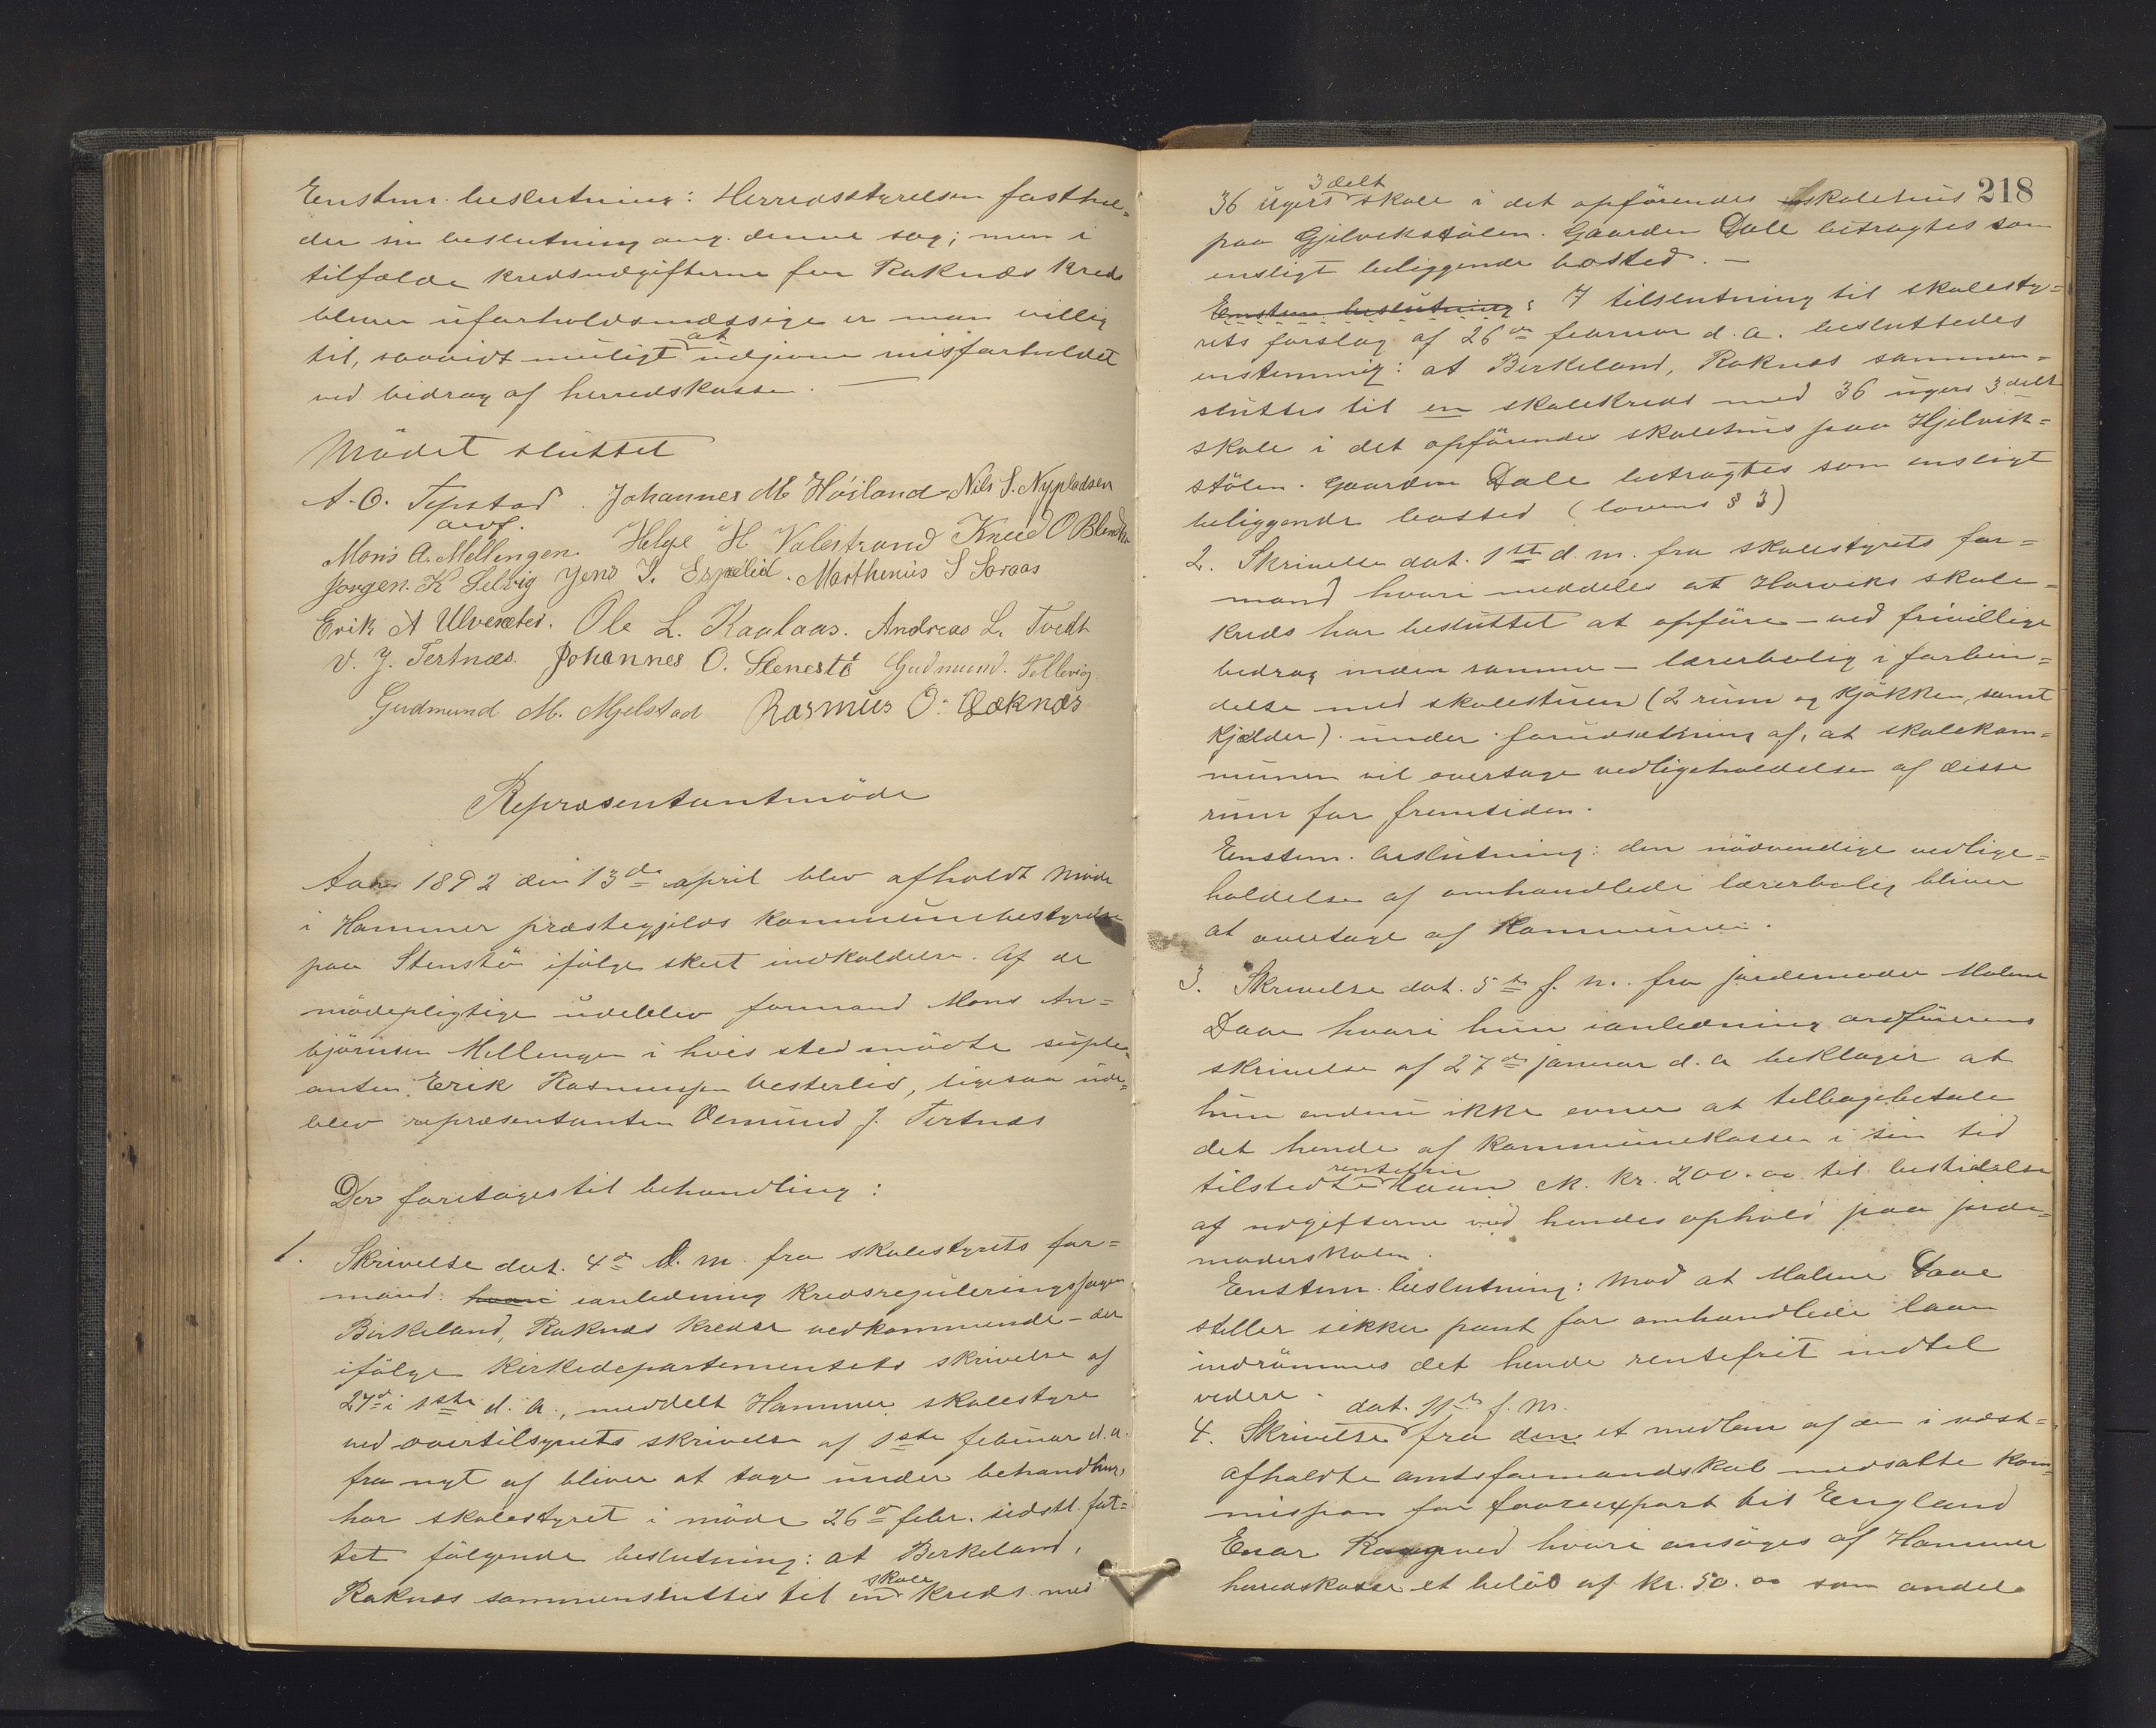 Enstem. beslutning: Herredsstyrelsen fasthol=
der sin beslutning ang. denne sag; men i
tilfælde kredsudgifterne for Raknæs kreds
bliver uforholdsmæssige er man villig
til, saavidt muligt at udjevne misforholdet
ved bidrag af herredskassen. —
Mödet sluttet
A. O. Tepstad Johannes M Høiland Nils S. Nypladsen
Mons A. Mellingen. Helge H Valestrand Knud O Blindh
Jørgen. K Selvig Jens J. Espelid. Marthinus S Soraas
Erik A Ulvesæter. Ole L. Kaalaas. Andreas L. Tvedt
V. J. Tertnæs. Johannes O. Stenestö Gudmund. Hellevig
Gudmund M. Mjelstad Rasmus O. Ræknæs
Repræsentantmöde
Aar 1892 den 13de april blev afholdt möde
i Hammer præstegjelds kommunebestyrelse
paa Stenstö ifölge skeet indkaldelse. Af de
mödepligtige udeblev formand Mons An=
björnsen Mellingen i hvis sted mödte suple=
anten Erik Rasmussen Vesterlid, ligesaa ude=
blev repræsentanten Osmund J. Tertnæs
Der foretoges til behandling:
1. Skrivelse dat. 4de d. m. fra skolestyrets for=
mand hvori ianledning kredsreguleringssagen
Birkeland, Raknæs kredse vedkommende – der
ifölge Kirkedepartementets skrivelse af
27de i 1ste d. a., meddelt Hammer skolestyre
ved overtilsynets skrivelse af 1ste februar d. a.
fra nyt af bliver at tage under behandling,
har skolestyret i möde 26de febr. sidstl. fat=
tet fölgende beslutning: at Birkeland,
Raknæs sammensluttes til en skole kreds med
218
36 ugers 3delt skole i det opförendes skolehus
paa Gjelvikstölen. Gaarden Dale betragtes som
ensligt beliggende bosted. —
Enstem beslutning: I tilslutning til skolesty=
rets forslag af 26de februar d. a. besluttedes
enstemmig: at Birkeland, Raknæs sammen=
sluttes til en skolekreds med 36 ugers 3delt
skole i det opförendes skolehus paa Hjelvik=
stölen. Gaarden Dale betragtes som ensligt
beliggende bosted (lovens § 3)
2. Skrivelse dat. 1ste d. m. fra skolestyrets for=
mand hvori meddeles at Horviks skole=
kreds har besluttet at opföre – ved frivillige
bidrag inden samme – lærerbolig i forbin=
delse med skolestuen (2 rum og kjökken, samt
kjælder) under forudsætning af, at skolekom=
munen vil overtage vedligeholdelsen af disse
rum for fremtiden.
Enstem. beslutning: den nödvendige vedlige=
holdelse af omhandlede lærerbolig bliver
at overtage af Kommunen.
3. Skrivelse dat. 5te f. m. fra jordemoder Malene
Daae hvori hun ianledning ordförerens
skrivelse af 27de januar d. a beklager at
hun endnu ikke evner at tilbagebetale
det hende af kommunekassen i sin tid
tilstedte rentefri laan stk. kr. 200.00 til bestridelse
af udgifterne ved hendes ophold paa jorde=
moderskolen.
Enstem. beslutning: Mod at Malene Daae
stiller sikker pant for omhandlede laan
indrömmes det hende rentefrit indtil
videre.
4. Skrivelse dat. 11te f. m. fra den et medlem af den i væst=
afholdte amtsformandskab nedsatte kom=
mission for faareexport til England
Enar Raagved hvori ansöges af Hammer
herredskasse et belöb af kr. 50.00 som andel